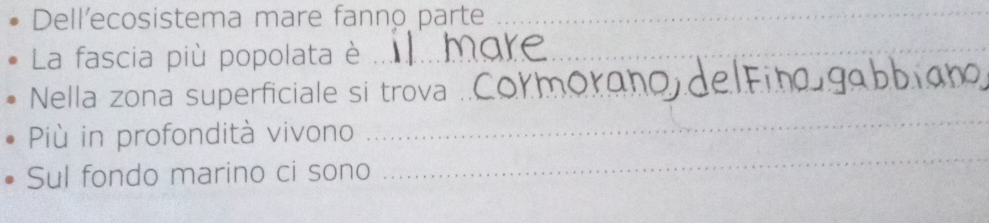 • Dell'ecosistema mare fanno parte ...
• La fascia più popolata è ... il mare ...
• Nella zona superficiale si trova ... cormorano, delFino, gabbiano,
• Più in profondità vivono ...
• Sul fondo marino ci sono ...